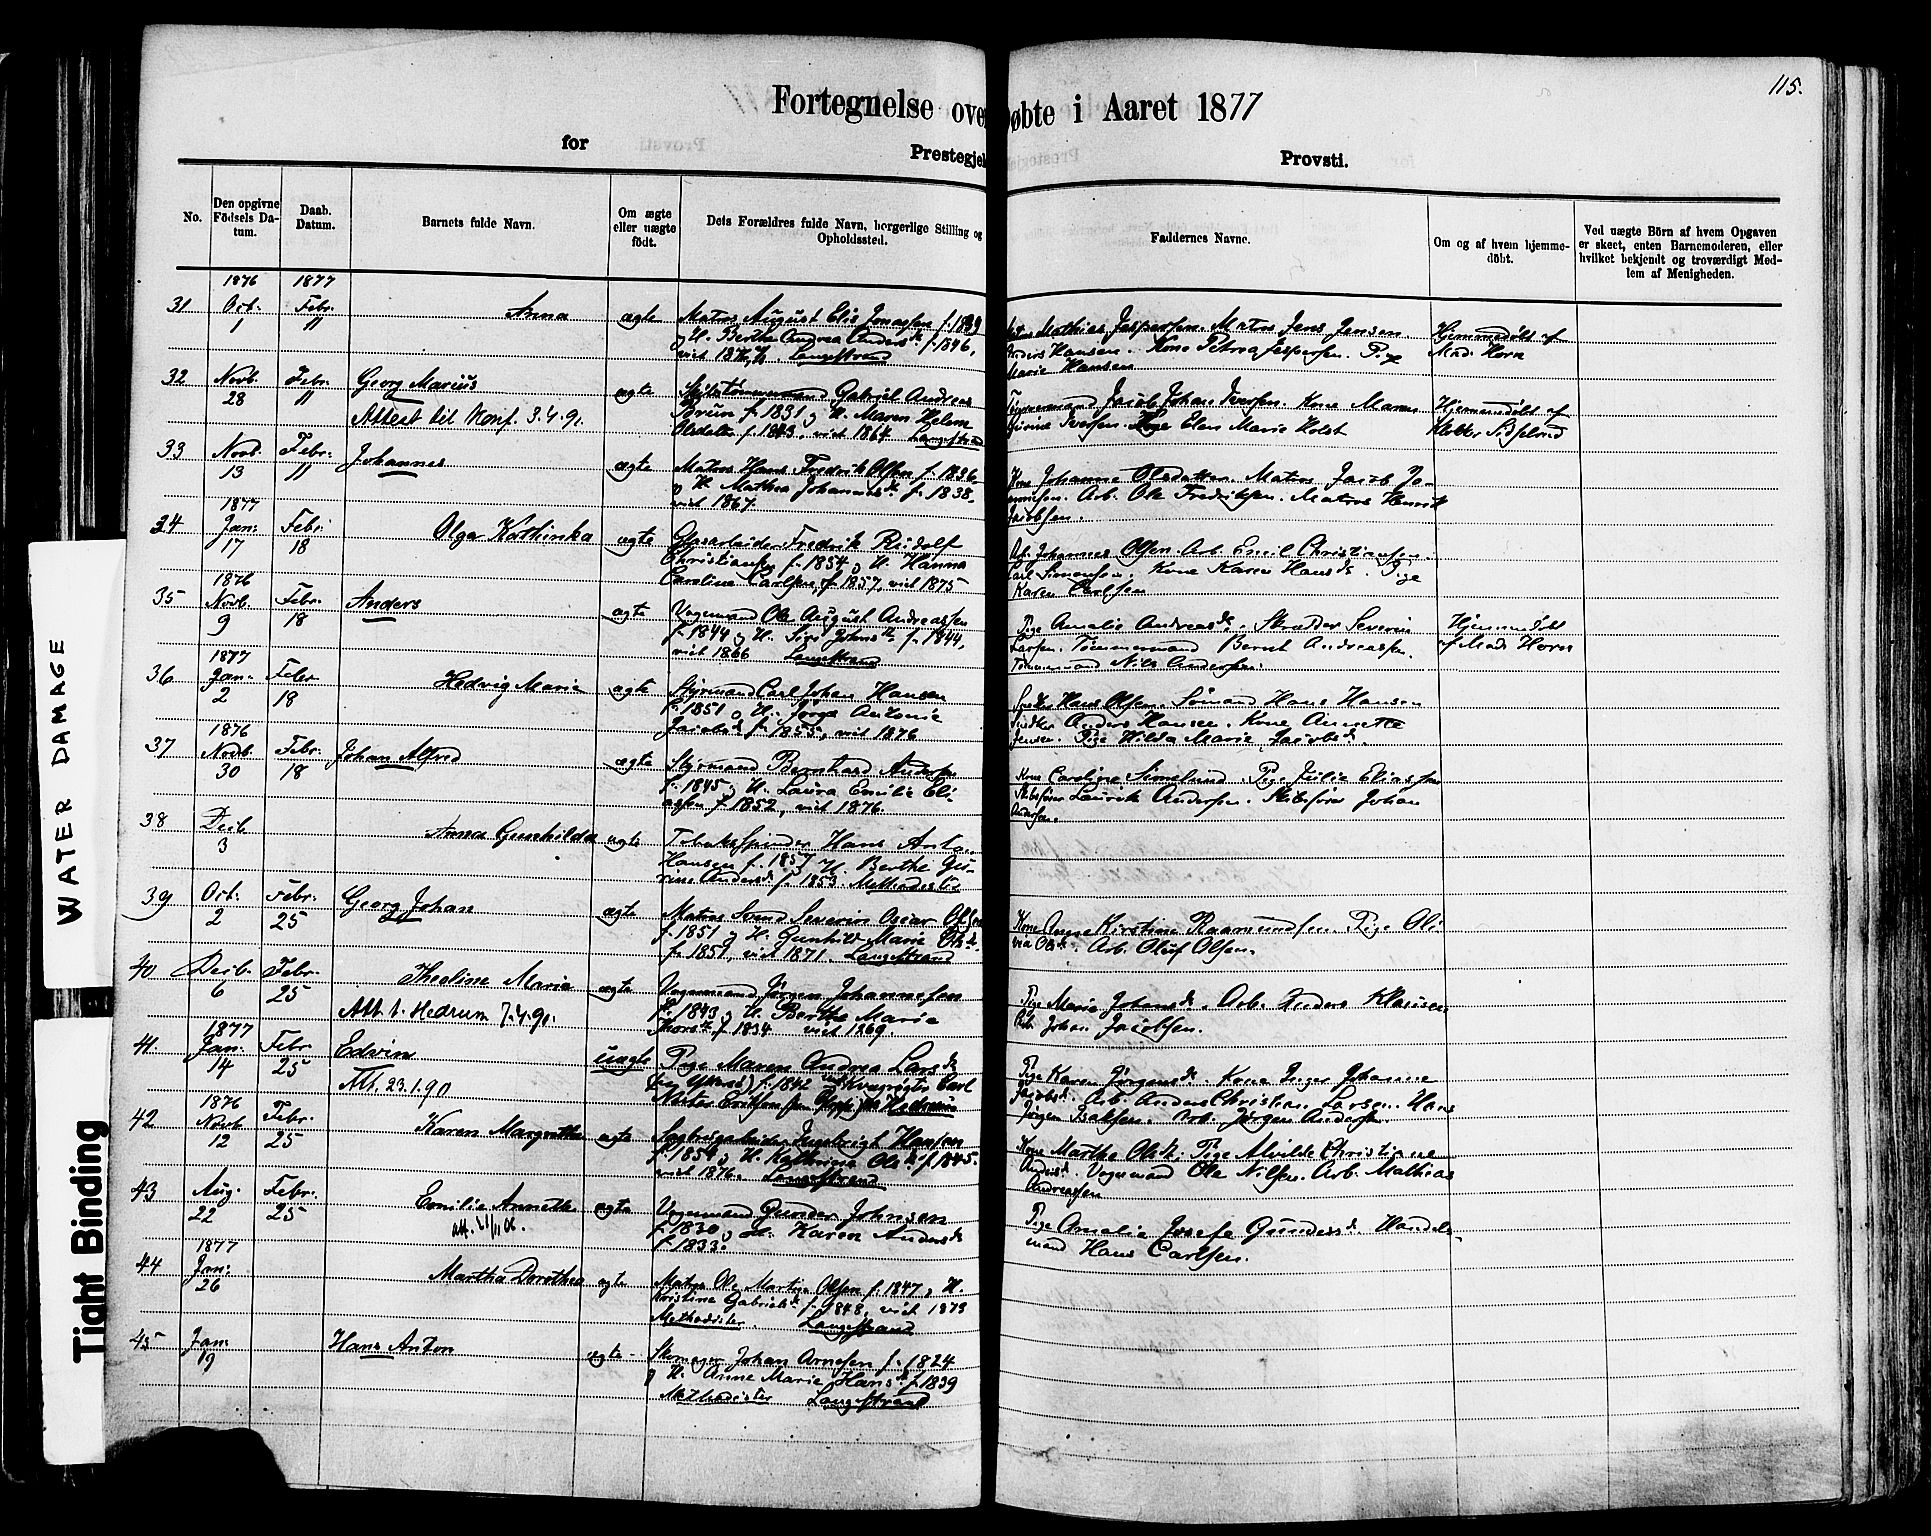 115.
Fortegnelse over døbte i Aaret 1877
for Prestegjeld Provsti.
No.
Den opgivne Fødsels Datum.
Daab. Datum.
Barnets fulde Navn.
Om ægte eller uægte født.
Dets Forældres fulde Navn, borgerlige Stilling og Opholdssted.
Faddernes Navne.
Om og af hvem hjemmedöbt.
Ved uægte Börn af hvem Opgaven er skeet, enten Barnemoderen, eller hvilket bekjendt og troværdigt Medlem af Menigheden.
1876 1877
31 Oct. 1 Febr. 11 Anna ægte
Matros August Elis Jonassen f. 1839
og H. Berthe Andrea Andersd. f. 1846,
viet Langestrand
Mathias Jespersen. Matros Jens Jensen
Hansen. Kone Petrea Jespersen. Pige
Marie Hansen
Hjemmedøbt af
Mad. Horn
32 Novb. 28 Febr. 11 Georg Marius ægte
Attest til Konf. 3.4.91.
Skibstømmermand Gabriel Andreas
f. 1831 og H. Maren Helene
Olsdatter f. 1843, viet 1864 Langestrand
Tømmermand Jacob Johan Iversen. Kone Maren
Iversen. Elen Marie Holst
Hjemmedøbt af
Klokker
33 Novb. 13 Febr. 11 Johannes ægte
Matros Hans Fredrik Olsen f. 1836
og H. Mathea Johannesd. f. 1838,
viet 1867.
Kone Johanne Olsdatter. Matros Jacob
Arb. Ole Fredriksen. Matros Henrik
Jacobsen.
1877
34 Jan. 17 Febr. 18 Olga Kathinka ægte
Glasarbeider Fredrik Rudolf
Christiansen f. 1854 og H. Hanna
Caroline Carlsen, f. 1857, viet 1875
Arb. Johannes Olsen. Arb. Emil Christiansen.
Carl Simonsen. Kone Karen Hansd. Pige
Karen Carlsen
1876
35 Novb. 9 Febr. 18 Anders ægte
Vognmand Ole August Andreassen
f. 1844 og H. Johnsd. f. 1844,
viet 1866 Langestrand
Pige Amalie Andreasd. Skrædder Severin
Larsen. Tømmermand Bernt Andreassen.
Tømmermand Nils Andersen.
Hjemmedøbt
af Mad. Horn
1877
36 Jan. 2 Febr. 18 Hedvig Marie ægte
Styrmand Carl Johan Hansen
f. 1851 og H. Antonie
Jacobsd. f. 1855, viet 1876
Hans Olsen. Sømand Hans Hansen
Anders Hansen. Kone Annette
Jensen. Pige Hilda Marie Jacobsd.
1876
37 Novb. 30 Febr. 18 Johan Alfred ægte
Styrmand Bernhard Andersen
f. 1845 og H. Laura Emilie Eli-
assen f. 1852, viet 1876.
Kone Caroline Simelund. Pige Julie Eliassen
Skibsfører Laurits Andersen. Skibsfører Johan
Andersen.
38 Decb. 3 Anna Gunhilda ægte
Tobaksspinder Hans Anton
Hansen f. 1857 H. Berthe Gu-
rine Andersd. f. 1853. Methodister
39 Oct. 2 Febr. 25 Georg Johan ægte
Matros Svend Severin Oscar Olsen
f. 1851 og H. Gunhild Marie Olsd.
f. 1851, viet 1871. Langestrand
Kone Anne Kirstine Raamundsen. Pige Oli-
via Olsd. Arb. Oluf Olsen.
40 Decb. 6 Febr. 25 Theoline Marie ægte
Att. t. Hedrum 7.4.91.
Vognmand Jørgen Johannesen
f. 1843 og H. Berthe Marie
Thorsd. f. 1834 viet 1869.
Pige Marie Johansd. Arb. Anders Klausen
Arb. Johan Jacobsen.
1877
41 Jan. 14 Febr. 25 Edvin uægte
Att. 23.1.90
Pige Maren Andrea Larsd.
f. 1842 Carl
Eriksen Hedrum
Pige Karen Jørgensd. Kone Inger Johanne
Jacobsd. Arb. Anders Christian Larsen. Hans
Jørgen Isaksen. Arb. Jørgen Andersen.
1876
42 Novb. 12 Febr. 25 Karen Margrethe ægte
Sagbrugsarbeider Ingebrigt Hansen
f. 1854 og H. Kathrine Olsd. f. 1845.
viet 1876. Langestrand
Kone Marthe Olsd. Pige Alvilde Christiane
Andersd. Vognmand Ole Nilsen. Arb. Mathias
Andreassen
43 Aug. 22 Febr. 25 Emilie Annette ægte
Att. 21/11 06.
Vognmand Gunder Johnsen
f. 1830 og H. Karen Andersd.
f. 1833.
Pige Amalie Josefe Gundersd. Handels-
mand Hans Carlsen.
1877
44 Jan. 26 Martha Dorothea ægte
Matros Ole Martin Olsen f. 1847 og H.
Kristine Gabrielsd. f. 1848, viet 1873
Methodister. Langestrand
45 Jan. 19 Hans Anton ægte
Skomager Johan Arnesen f. 1824
og H. Anne Marie Hansd. f. 1839
Methodister Langestrand
WATER DAMAGE
Tight Binding